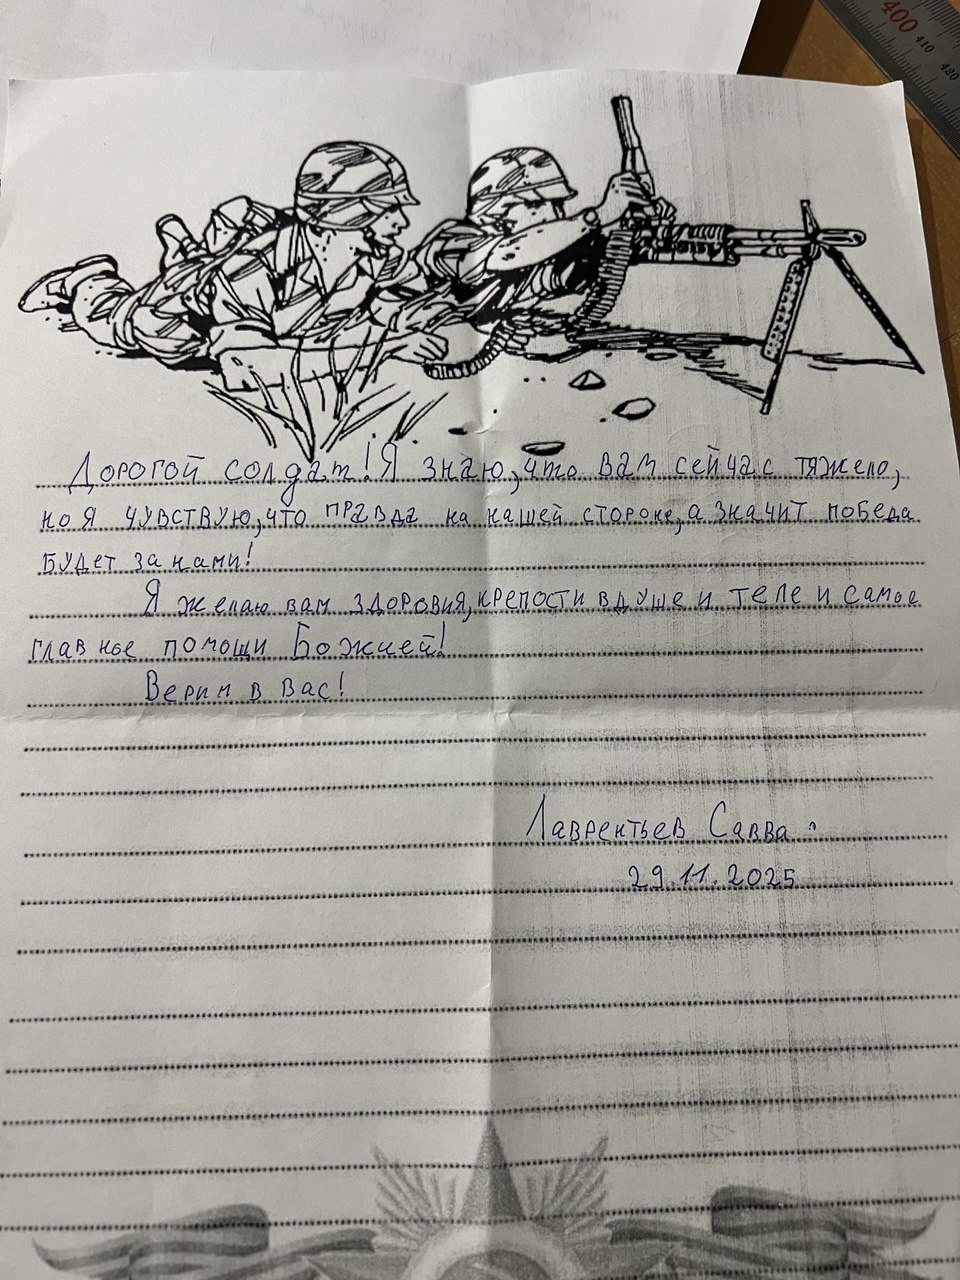 400
410
420
Дорогой солдат! Я знаю, что вам сейчас тяжело,
но я чувствую, что правда на нашей стороне, а значит победа
будет за нами!
Я желаю вам здоровия, крепости в душе и теле и самое
главное помощи Божией!
Верим в Вас!
Лаврентьев Савва.
29.11.2025